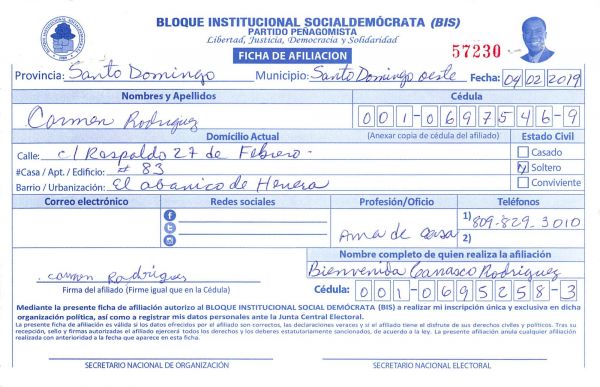 BLOQUE INSTITUCIONAL SOCIALDEMÓCRATA (BIS)
PARTIDO PEÑAGOMISTA
Libertad, Justicia, Democracia y Solidaridad
FICHA DE AFILIACION
57230
Provincia: Santo Domingo Municipio: Santo Domingo oeste Fecha: 09/02/2019
Nombres y Apellidos Cédula
Carmen Rodriguez 001-0697546-9
Domicilio Actual (Anexar copia de cédula del afiliado) Estado Civil
Calle: c/ Respaldo 27 de Febrero - Casado
#Casa / Apt. / Edificio: # 83 Soltero
Barrio / Urbanización: El abanico de Herrera Conviviente
Correo electrónico Redes sociales Profesión/Oficio Teléfonos
Ama de casa 1) 809-829-3010
2)
Nombre completo de quien realiza la afiliación
carmen Rodrigues Bienvenida Carrasco Rodriguez
Firma del afiliado (Firme igual que en la Cédula) Cédula: 001-0695258-3
Mediante la presente ficha de afiliación autorizo al BLOQUE INSTITUCIONAL SOCIAL DEMÓCRATA (BIS) a realizar mi inscripción única y exclusiva en dicha
organización política, así como a registrar mis datos personales ante la Junta Central Electoral.
La presente ficha de afiliación es válida si los datos ofrecidos por el afiliado son correctos, las declaraciones veraces y si el afiliado tiene el disfrute de sus derechos civiles y políticos. Tras su
recepción, sello y firmas autorizadas el afiliado ejercerá todos los derechos y los deberes estatutariamente sancionados, de acuerdo a la ley. La presente afiliación anula cualquier afiliación
realizada con anterioridad a la fecha que aparece en esta ficha.
SECRETARIO NACIONAL DE ORGANIZACIÓN SECRETARIO NACIONAL ELECTORAL